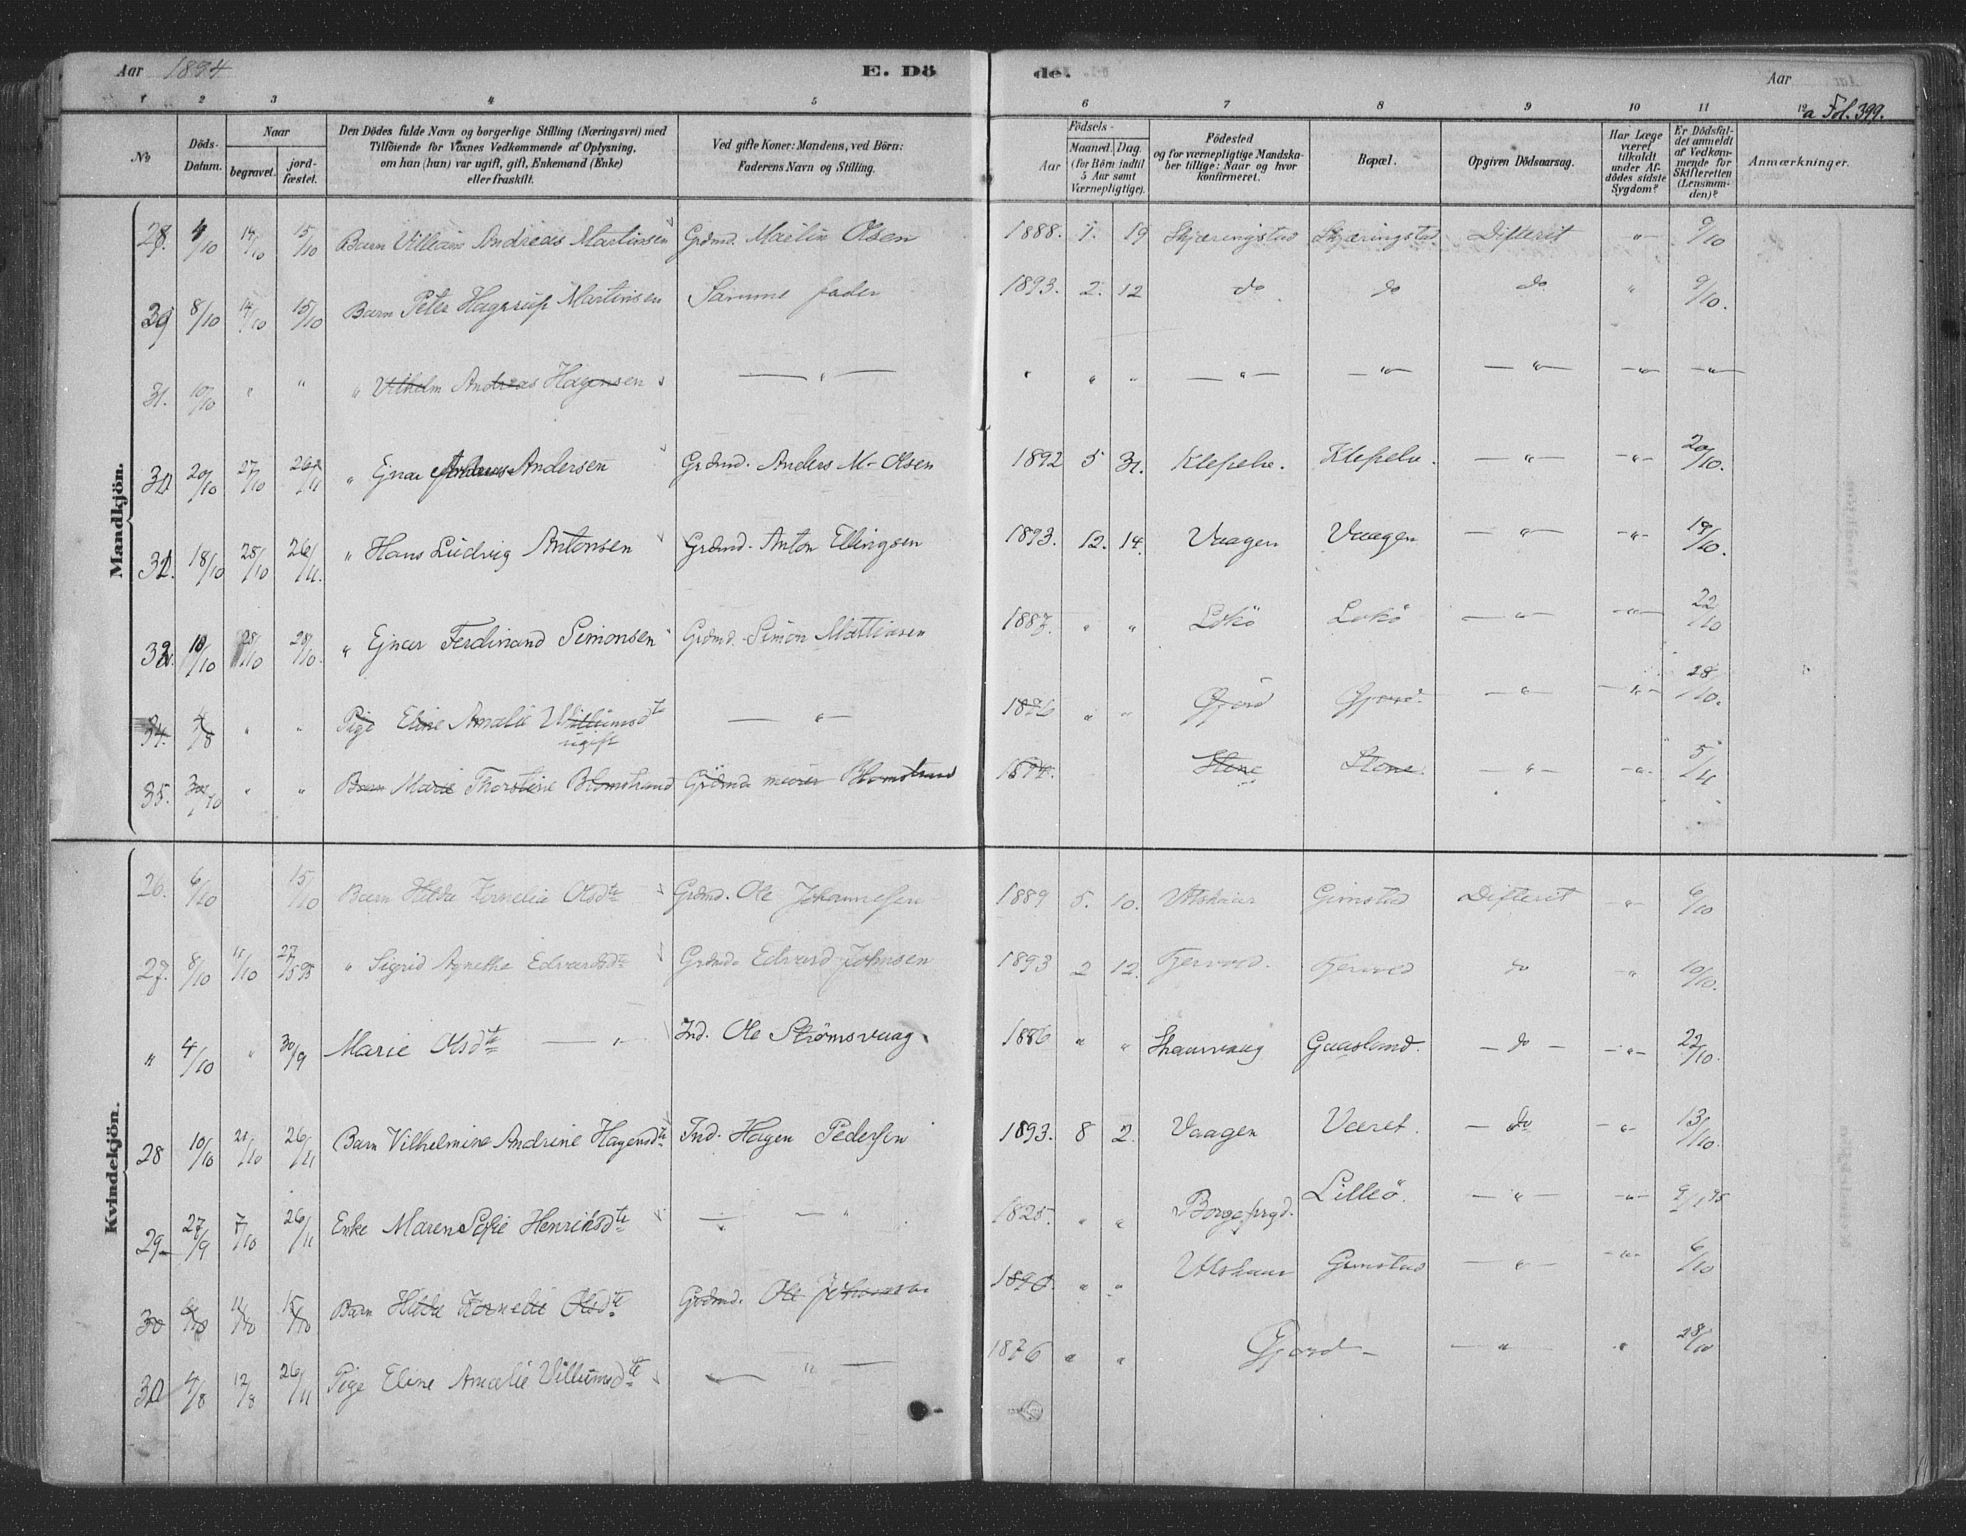 Aar 1894 E. Dö de. Aar
1 2 3 4 5 6 7 8 9 10 11 12 a Fol. 399.
No
Döds-Datum.
Naar
begravet.
jord-fæstet.
Den Dödes fulde Navn og borgerlige Stilling (Næringsvei) med
Tilföiende for Voxnes Vedkommende af Oplysning,
om han (hun) var ugift, gift, Enkemand (Enke)
eller fraskilt.
Ved gifte Koner: Mandens, ved Börn:
Faderens Navn og Stilling.
Födsels-
Aar
Maaned. Dag.
(for Börn indtil
5 Aar samt
Værnepligtige).
Födested
og for værnepligtige Mandska-
ber tillige: Naar og hvor
konfirmeret.
Bopæl.
Opgiven Dödsaarsag.
Har Læge
været
tilkaldt
under Af-
dödes sidste
Sygdom?
Er Dödsfal-
det anmeldt
af Vedkom-
mende for
Skifteretten
(Lensman-
den)?
Anmærkninger.
Mandkjön.
4/10 14/10 15/10 Barn Villiam Andreas Martinsen Grdmd. Martin Olsen 1888. 7. 19 Skjæringstad Skjæringstad Difterit " 9/10
8/10 14/10 15/10 Barn Peter Hagerup Martinsen Samme fader 1893. 2. 12 do do do " 9/10.
31. 10/10 " " " Vilhelm Andreas Hagensen — " — " " " — " — — " — — " — — " — — " —
20/10 27/10 26/11 " Ejnar Andersen Grdmd. Anders M. Olsen 1892 5 31. Klepelv. Klepelv. — " — — " — 20/10.
18/10 28/10 26/11. " Hans Ludvig Antonsen Grdmd. Anton Ellingsen 1893. 12. 14. Vaagen Vaagen — " — — " — 19/10.
10/10 28/10 28/10. " Ejnar Ferdinand Simonsen Grdmd. Simon Mattiasen 1887. " " Lokö Lokö — " — — " — 22/10
34. 4/8 " " Pige Eline Amalie Willumsdte — " — 1876 " " Gjord Gjord. — " — — " — 28/10.
ugift
35. 30/10 " " Barn Marie Thorstine Blomstrand Grdmd. Blomstrand 1894. Stene Stene — " — — " — 5/11
Kvindekjön.
26. 6/10 15/10 Barn Hilda Kornelia Olsdte Grdmd. Ole Johannesen 1889 5. 10. Utskaar Gimstad Difterit — " — 6/10
27. 8/10 11/10 27/5 95 " Sigrid Agnethe Edvardsdte Grdmd. Edvard Johnsen 1893 2 12. Fjervold. Fjervold do — " — 10/10.
" 4/10 " 30/9 Marie Olsdte — " — Ind. Ole Strömsvaag 1886 " " Skaarvaag Gaaslund. — do — — " — 22/10.
28 10/10 21/10 26/11 Barn Vilhelmine Andrine Hagensdte Ind. Hagen Pedersen 1893. 8 2. Vaagen Været. — do — " — 13/10.
29 27/9 7/10 26/11 Enke Maren Sofie Henriksdte — — " 1825. " " Borge prgd. Lilleö. — " — — " — 9/1 95
30 6/10 11/10 15/10 Barn Hilda Kornelie Olsdte Grdmd. Ole Johansen 1890. " " Utskaar Gimstad — " — — " — 6/10
30 4/8 12/8 26/11 Pige Eline Amalie Villumsdte — " — 1876 " " Gjord — — " — " 28/10